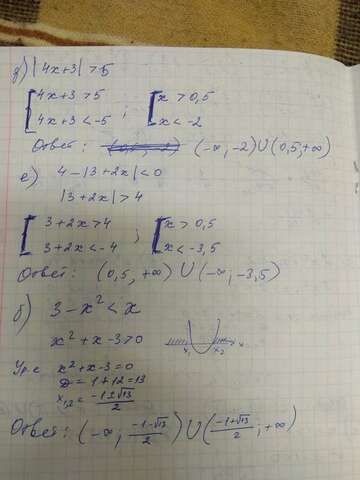 д) |4x+3| > 5
[ 4x+3 > 5 ; [ x > 0,5
4x+3 < -5 x < -2
Ответ: (-∞, -2) U (0,5, +∞)
е) 4 - |3+2x| < 0
|3+2x| > 4
[ 3+2x > 4 ; [ x > 0,5
3+2x < -4 x < -3,5
Ответ: (0,5, +∞) U (-∞, -3,5)
б) 3 - x² < x
x² + x - 3 > 0 x₁ x₂ x
x² + x - 3 = 0
D = 1 + 12 = 13
x₁,₂ = (-1 ± √13)/2
Ответ: (-∞; (-1-√13)/2) U ((-1+√13)/2; +∞)